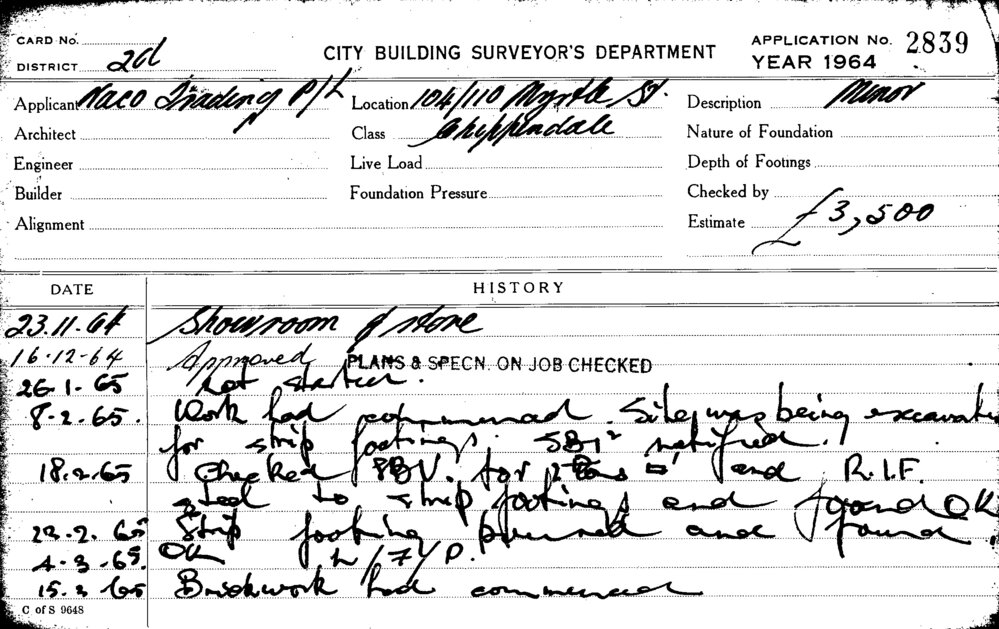 CARD No.
DISTRICT 2d
CITY BUILDING SURVEYOR'S DEPARTMENT
APPLICATION No. 2839
YEAR 1964
Applicant Naco Trading P/L Location 104/110 Myrtle St. Description Minor
Architect Class Chippendale Nature of Foundation
Engineer Live Load Depth of Footings
Builder Foundation Pressure Checked by
Alignment Estimate £3,500
DATE HISTORY
23.11.64 Showroom & store
16-12-64 Approved PLANS & SPECN. ON JOB CHECKED
26.1.65 Not started.
8.2.65. Work had commenced. Site was being excavated
for strip footings. notified.
18.2.65 Checked for and R.I.F.
steel to strip footings and found OK
23.2.65 Strip footing poured and found
4.3.65. OK
15.3.65 Brickwork had commenced
C of S 9648